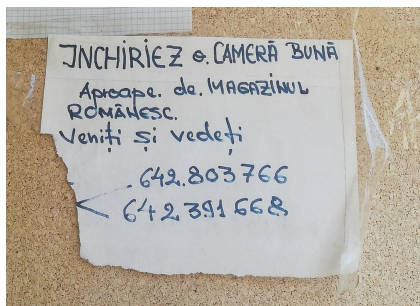 INCHIRIEZ O. CAMERĂ BUNĂ
Aproape. de. MAGAZINUL
ROMÂNESC.
Veniți și vedeți
642.803766
642391668